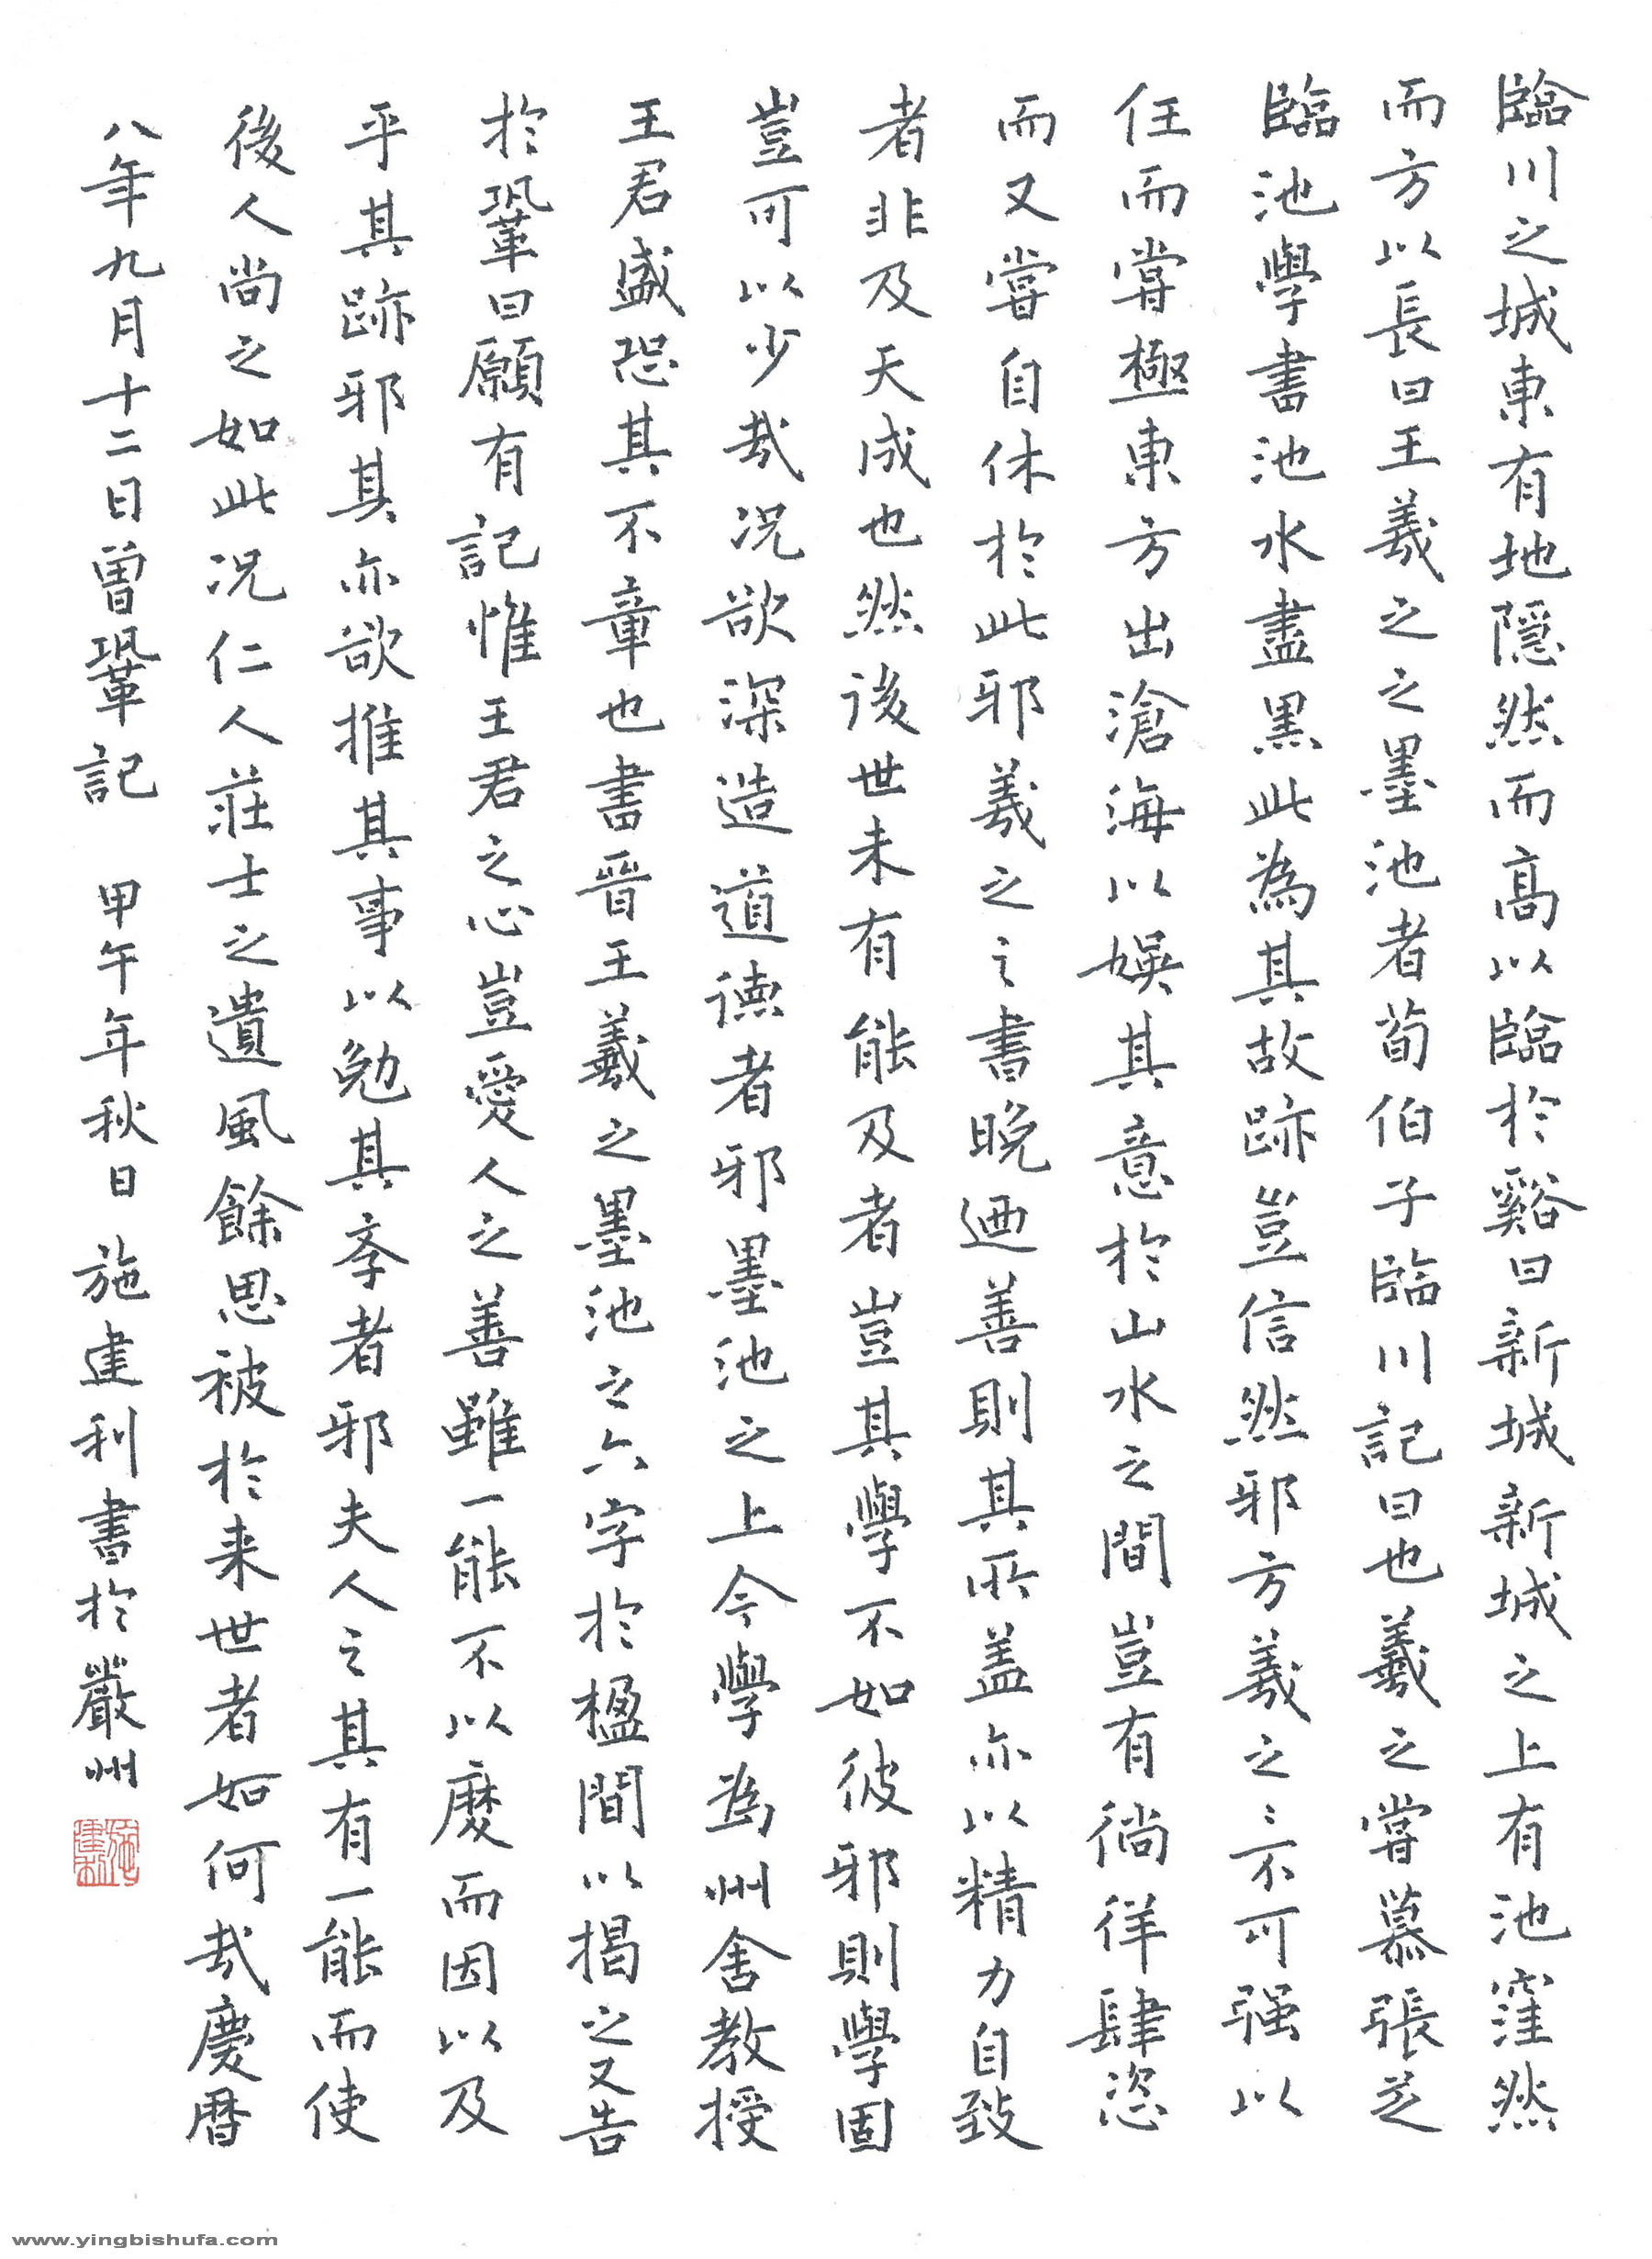 臨川之城東有地隱然而高以臨於谿曰新城新城之上有池窪然
而方以長曰王羲之之墨池者荀伯子臨川記曰也羲之嘗慕張芝
臨池學書池水盡黑此為其故跡豈信然邪方羲之〻不可强以
任而嘗極東方出滄海以娛其意於山水之間豈有徜徉肆恣
而又嘗自休於此邪羲之之書晚迺善則其所盖亦以精力自致
者非及天成也然後世未有能及者豈其學不如彼邪則學固
豈可以少哉况欲深造道德者邪墨池之上今學為州舍教授
王君盛恐其不章也書晉王羲之墨池之六字於楹間以揭之又告
於鞏曰願有記惟王君之心豈愛人之善雖一能不以廢而因以及
乎其跡邪其亦欲推其事以勉其斈者邪夫人之其有一能而使
後人尚之如此况仁人莊士之遺風餘思被於来世者如何哉慶暦
八年九月十二日曾鞏記 甲午年秋日 施建利書於嚴州
施建利
www.yingbishufa.com